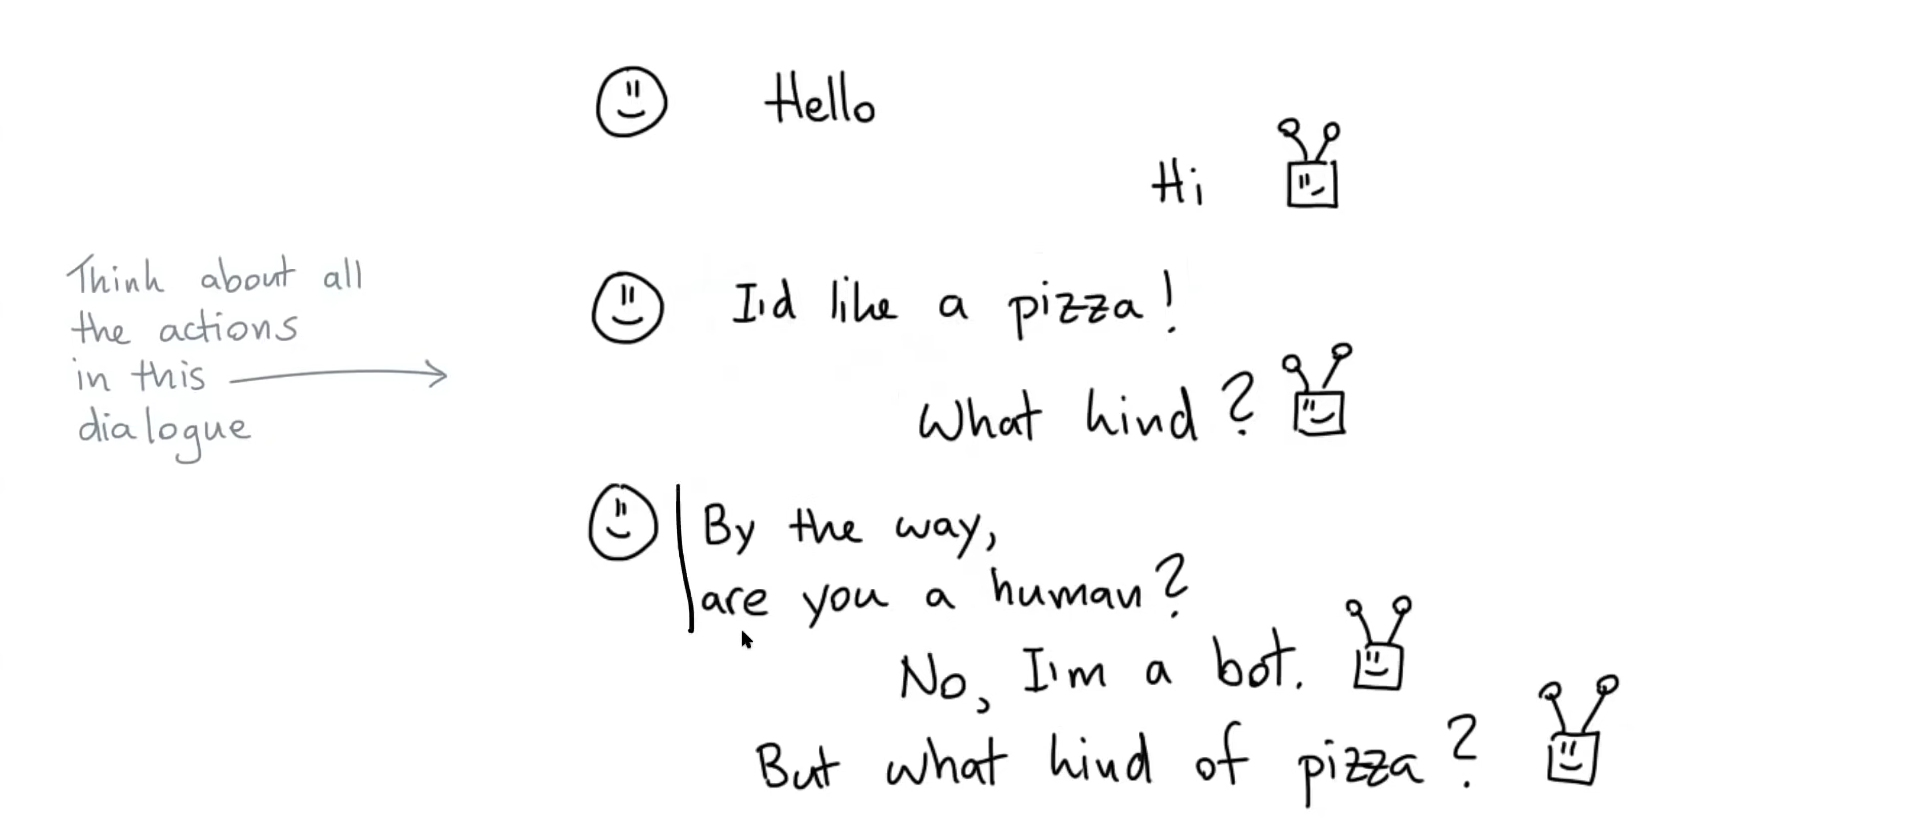 Hello
Hi
Think about all
the actions
in this
dialogue
I'd like a pizza!
What kind?
By the way,
are you a human?
No, I'm a bot.
But what kind of pizza?